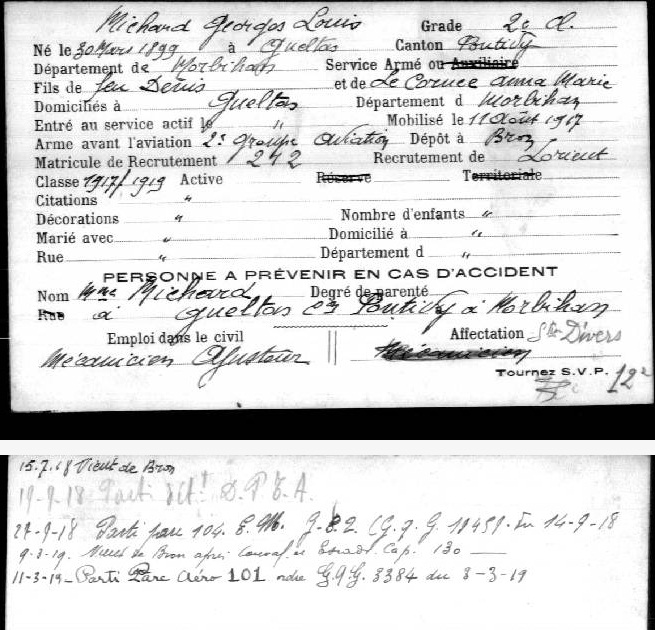 Michard Georges Louis Grade 2e Cl.
Né le 30 Mars 1899 à Gueltas Canton Pontivy
Département de Morbihan Service Armé ou Auxiliaire
Fils de feu Denis et de Le Cornec Anna Marie
Domiciliés à Gueltas Département d Morbihan
Entré au service actif le " Mobilisé le 11 Août 1917
Arme avant l'aviation 2e groupe aviation Dépôt à Bron
Matricule de Recrutement 242 Recrutement de Lorient
Classe 1917/1919 Active Réserve Territoriale
Citations "
Décorations " Nombre d'enfants "
Marié avec " Domicilié à "
Rue " Département d "
PERSONNE A PRÉVENIR EN CAS D'ACCIDENT
Nom Mme Michard Degré de parenté
Rue à Gueltas Con Pontivy à Morbihan
Emploi dans le civil Affectation Divers
Mécanicien Ajusteur Mécanicien
Tournez S.V.P. 12
15.7.18 Vient de Bron
19-9-18 Parti dét. D.P.E.A.
Parti parc 104. du 14-9-18
Vient de Bron après Cap. 130
11-3-19 - Parti Parc Aéro 101 ordre G.Q.G. 3384 du 3-3-19